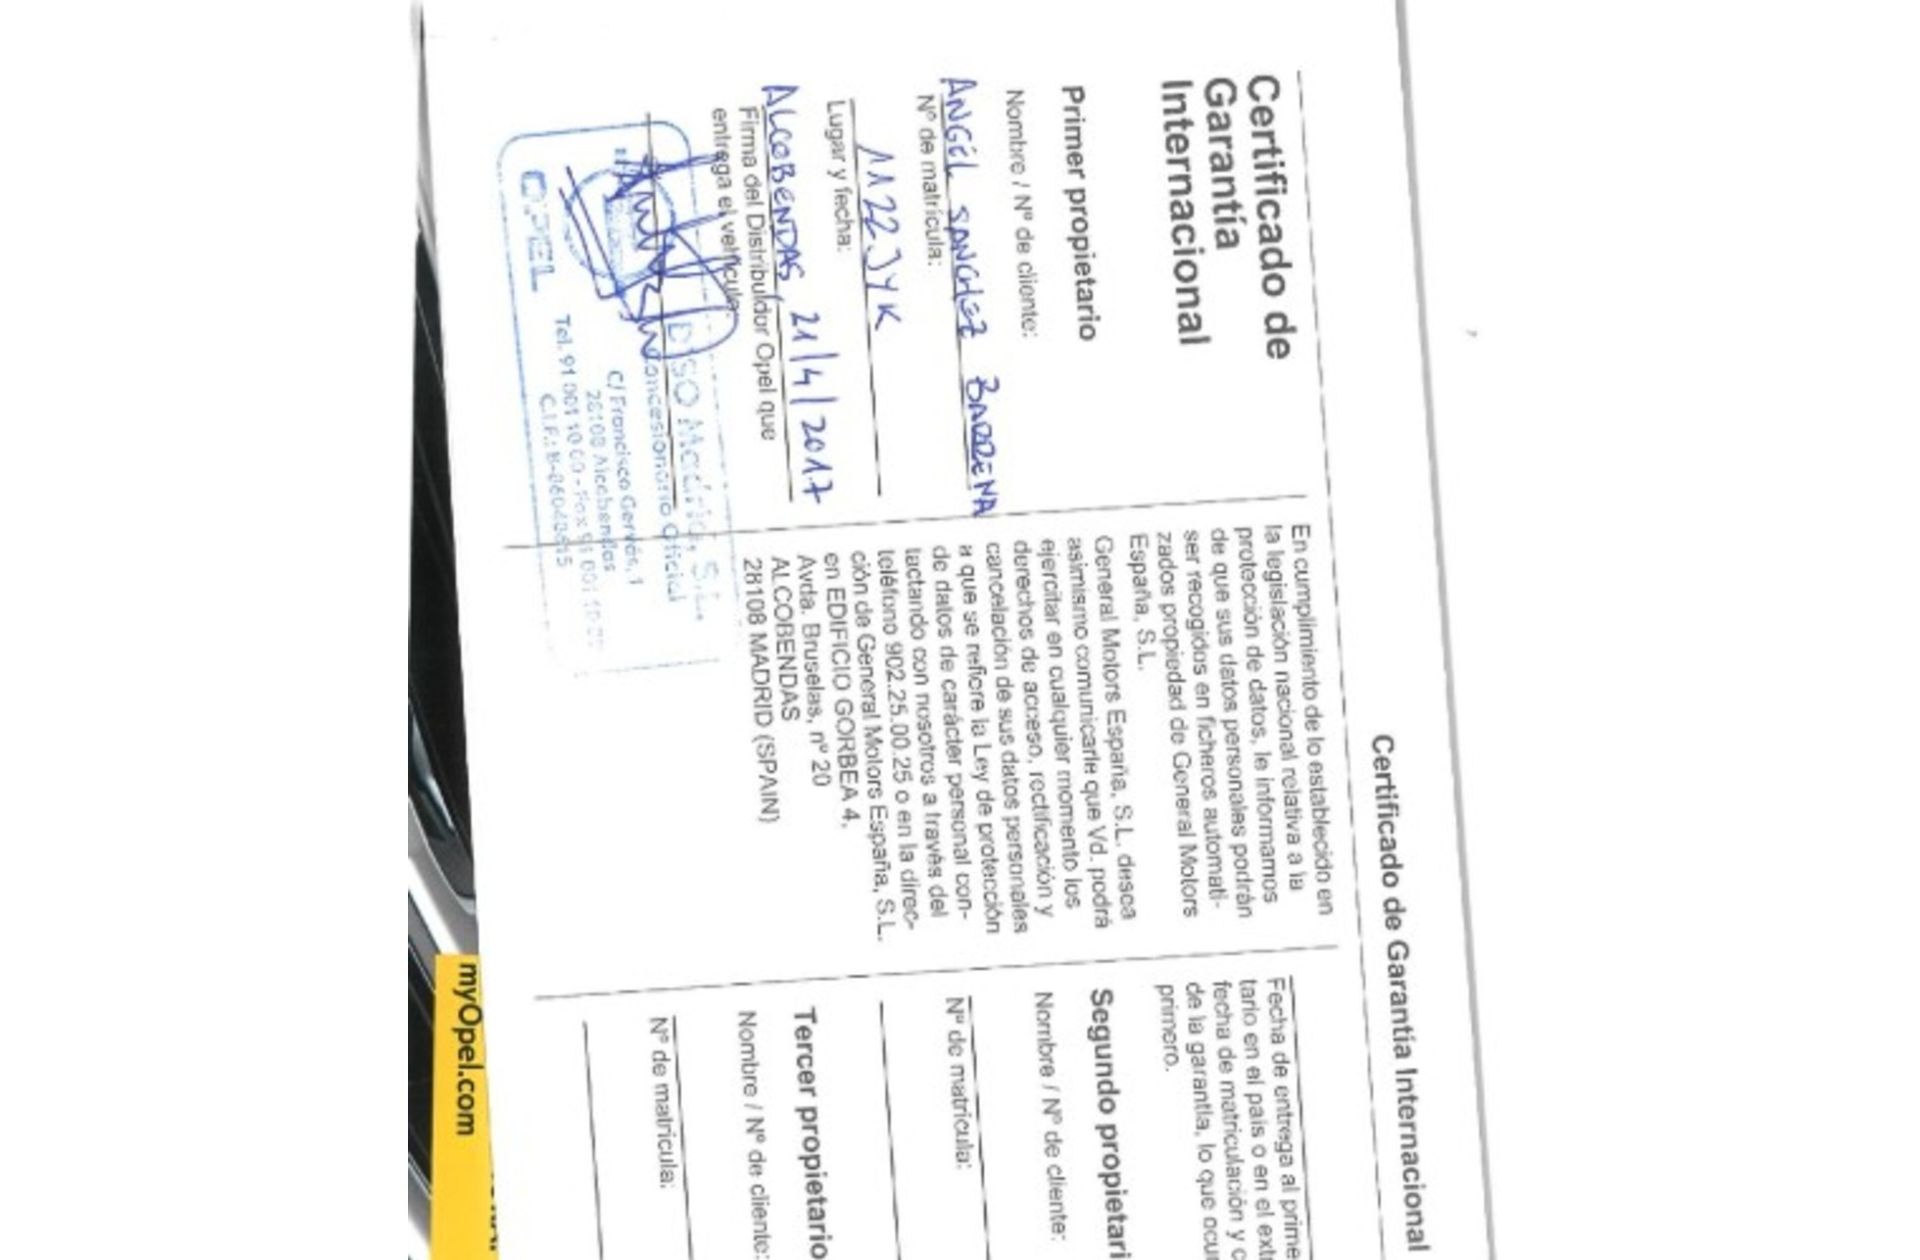 Certificado de Garantía Internacional
Certificado de
Garantía
Internacional
Primer propietario
Nombre / Nº de cliente:
ANGEL SANCHEZ BARRENA
Nº de matrícula:
1122JYK
Lugar y fecha:
ALCOBENDAS, 21/4/2017
Firma del Distribuidor Opel que
entrega el vehículo:
DISO Madrid, S.L.
Concesionario Oficial
C/ Francisco Gervás, 1
28108 Alcobendas
Tel. 91 001 10 00 - Fax 91 001
C.I.F.:
OPEL
En cumplimiento de lo establecido en
la legislación nacional relativa a la
protección de datos, le informamos
de que sus datos personales podrán
ser recogidos en ficheros automati-
zados propiedad de General Motors
España, S.L.
General Motors España, S.L. desea
asimismo comunicarle que Vd. podrá
ejercitar en cualquier momento los
derechos de acceso, rectificación y
cancelación de sus datos personales
a que se refiere la Ley de protección
de datos de carácter personal con-
tactando con nosotros a través del
teléfono 902.25.00.25 o en la direc-
ción de General Motors España, S.L.
en EDIFICIO GORBEA 4,
Avda. Bruselas, nº 20
ALCOBENDAS
28108 MADRID (SPAIN)
Fecha de entrega al prime
tario en el país o en el ext
fecha de matriculación y c
de la garantía, lo que ocu
primero.
Segundo propietari
Nombre / Nº de cliente:
Nº de matrícula:
Tercer propietario
Nombre / Nº de cliente:
Nº de matrícula:
myOpel.com